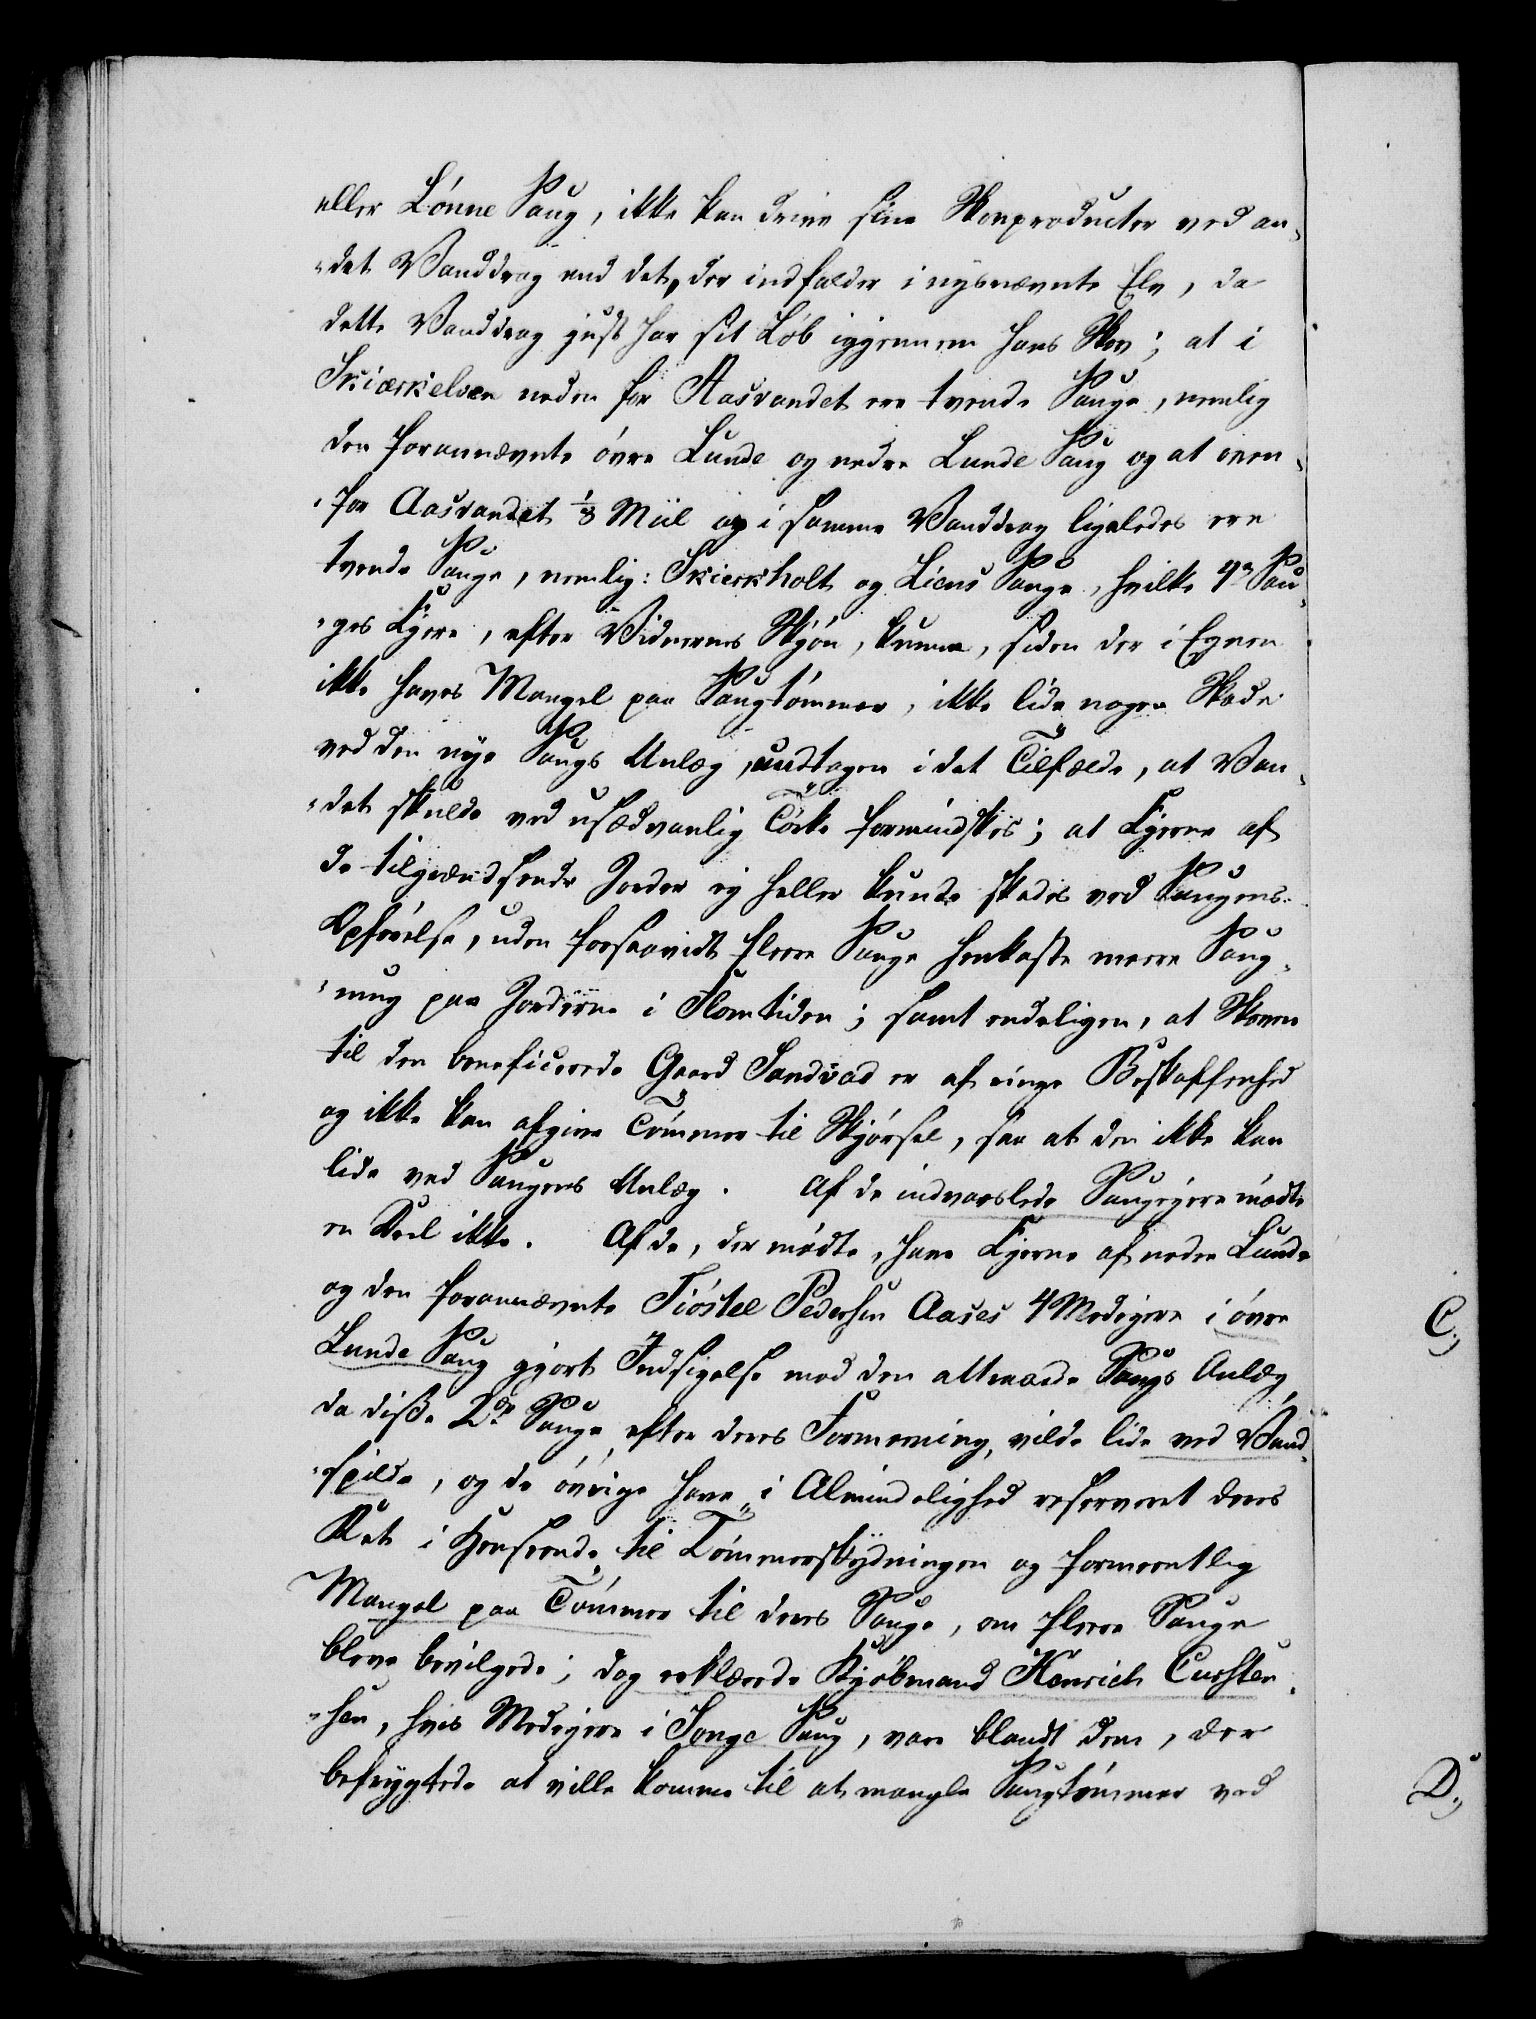 eller Lönne Saug, ikke kan drive sine Skovproducter ved an-
-det Vanddrag end det, der indfalder i nysnævnte Elv, da
dette Vanddrag just har sit Löb igjennem hans Skov; at i
Skiærkelven neden for Aasvandet ere tvende Sauge, nemlig
den forannævnte övre Lunde og nedre Lunde Saug og at oven-
-for Aasvandet 1/8 Miil og i samme Vanddrag ligeledes ere
tvende Sauge, nemlig: Skierkholt og Liens Sauge, hvilke 4re Sau-
-ges Ejere, efter Vidnernes Skjön, kunne, siden der i Egnen
ikke haves Mangel paa Saugtömmer, ikke lide nogen Skade
ved den nye Saugs Anlæg, undtagen i det Tilfælde, at Van-
-det skulde ved usædvanlig Törke formindskes; at Ejerne af
de tilgrændsende Jorder ej heller kunde skades ved Saugens
Opförelse, uden forsaavidt flere Sauge henkaste mere Saug-
-mug paa Jorderne i Flomtiden; samt endeligen, at Skoven
til den beneficerede Gaard Sandvad er af ringe Beskaffenhed
og ikke kan afgive Tömmer til Skjörsel, saa at den ikke kan
lide ved Saugens Anlæg. Af de indvarslede Saugejere mödte
en Deel ikke. Af de, der mödte, have Ejerne af nedre Lunde
og den forannævnte Tiöstel Pedersen Aases 4 Medejere i övre
Lunde Saug gjort Indsigelse mod den attraaede Saugs Anlæg,
da disse 2de Sauge, efter deres Formening, vilde lide ved Vand-
-spilde, og de övrige have i Almindelighed reserveret deres
Ret i Henseende til Tömmerskydningen og formeentlig
Mangel paa Tömmer til deres Sauge, om flere Sauge
bleve bevilgede; dog erklærede Kjöbmand Henrich Carsten-
-sen, hvis Medejere i Songe Saug, vare blandt dem, der
befrygtede at ville komme til at mangle Saugtömmer ved
C.)
D.)